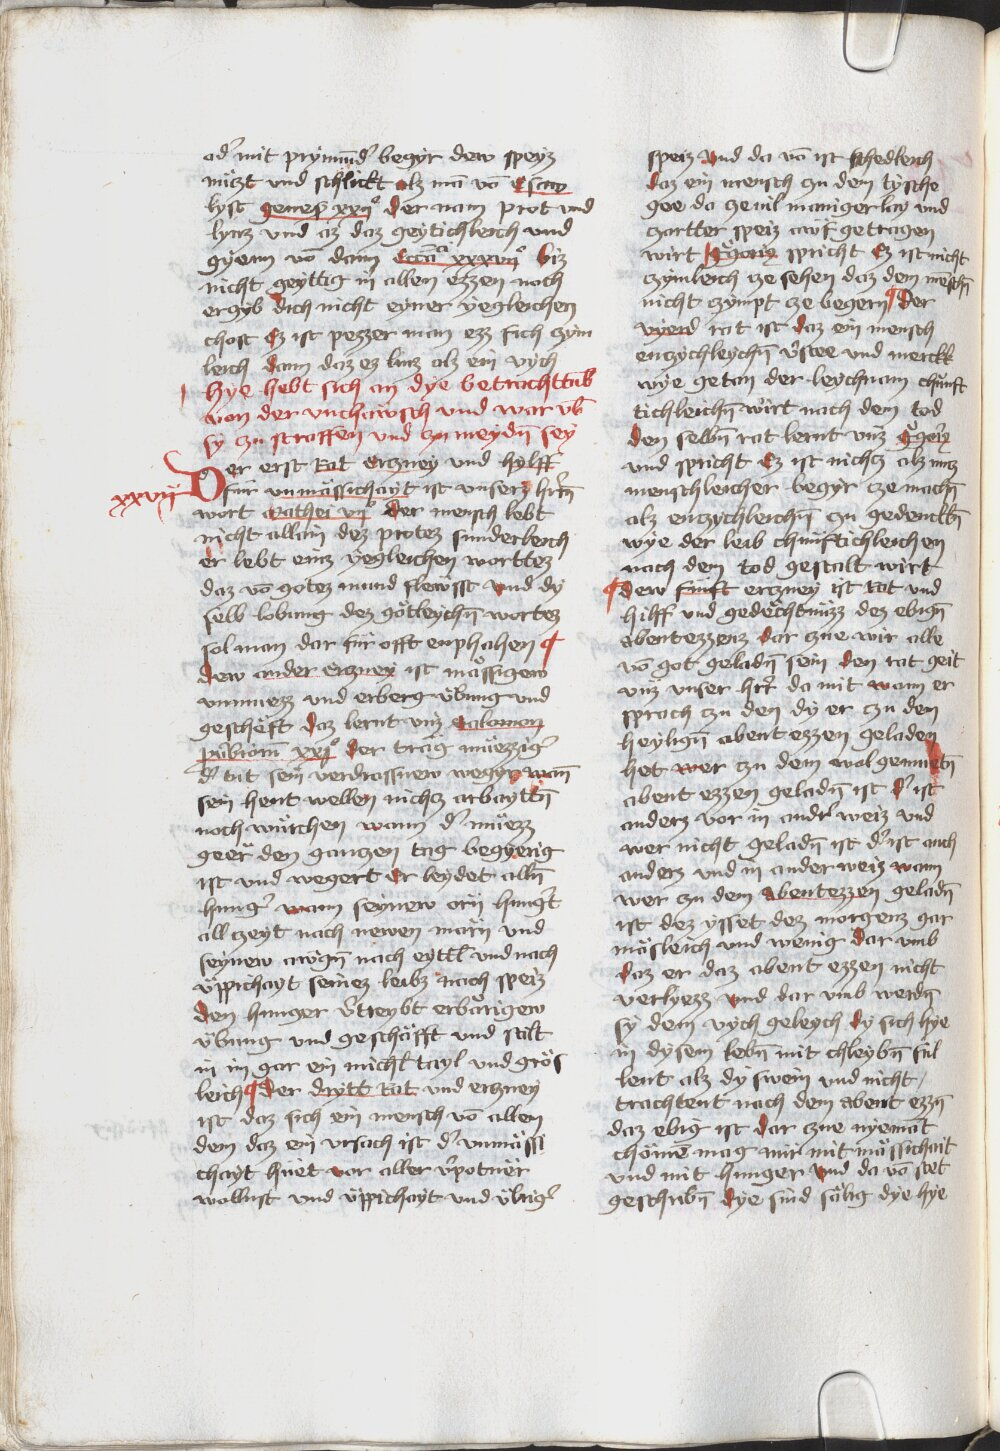 od' mit prymund' begyr dew speyz
nüzt und schlickt alz mā vō Esaw
lyst genes̄ xxv° der nam prot und
lynz und az daz geytichleich und
gyenn vō dann Eccā xxxvij° biz
nicht geyttig in allen ezzen noch
ergyb dich nicht eyner yegleichen
chost Ez ist pezzer man ezz sich zym
leich dann daz ez luz alz ein vych
Hye hebt sich an dye betrachttūb
von der vnchawsch und war vb̄
sy zu straffen und zu meydn̄ sey
xxvij
Der erst Rat erczney und hylff
für unmässichayt ist unserz hr̄rn̄
wort Mathei iiij° der mensch lebt
nicht allain dez protez sunderleich
er lebt einz yegleichen worttez
daz vō gotez mund flewsst und dy
selb lobung dez götleychn̄ wortez
sol man dar für offt enphahen ¶
dew ander erczney ist mässigew
unmuezz und erberg übung und
geschäft daz lernt unz Salomon
pūbiorū xxj° der träg müezzig'
d' tüt sein verdrossnew wegyr wann
sein hent wellen nichcz arbayttn̄
noch würchen wann d' müezz
geer den ganczen tag begyerig
ist und wegert er leydet alln̄
hung' wann seynew orn hung't
all zeyt nach newen märn und
seynew awgn̄ nach eyttl' und nach
üppichayt seinez leibz nach speiz
den hunger v'treybt erbärigew
übung und geschäfft und stilt
in im gar ein michl' tayl und grös
leich ¶ der drytt Rat und erczney
ist daz sich ein mensch vō allen
dem daz ein ursach ist d' unmässi
chayt huet vor aller v'potner
wollust und üppichayt und übrig'
speiz und da vō ist schedleich
daz ein mensch zu dem tysche
gee da ze vil maniger lay und
zartter speiz awf getragen
wirt ¶ Gg̊oriy spricht Ez ist nicht
zymleich ze sehen daz dem mēschn̄
nicht zympt ze begern ¶ Der
vyerd rat ist daz ein mensch
enzychleychn̄ v'stee und merckk
wye getan der leychnam chunft
tichleichn̄ wirt nach dem tod
den selbn̄ rat lernt unz Gg̊oriy
und spricht Ez ist nichcz alz nucz
menschleicher begyr ze machn̄
alz enzychleichn̄ zu gedenckn̄
wye der leib chunftichleichen
nach dem tod gestalt wirt
¶ dew fünft erczney ist Rat und
hilff und gedechtnüzz dez ebign̄
abentezzenz dar zue wir alle
vō got geladn̄ sein den rat geit
unz unser hr̄r da mit wann er
sprach zu den dy er zu dem
heylign̄ abent ezzen geladen
het wer zu dem wol genuetn̄
abent ezzen geladn̄ ist d' ist
anderz vor in andr' weiz und
wer nicht geladn̄ ist d' ist auch
anderz und in ander weiz wann
wer zu dem Abentezzen geladn̄
ist dez ysset dez morgenz gar
mäsleich und wenig dar umb
daz er daz abent ezzen nicht
verlyezz und dar umb werdn̄
sy dem vych geleych dy sich hye
in dysem lebn̄ mit chleybn̄ fül
lent alz dy swein und nicht
trachtent nach dem abent ezzn̄
daz ebig ist dar zue nyemāt
chömē mag nur mit mässichait
und mit hunger und da vō stet
geschribn̄ dye sind sälig dye hye